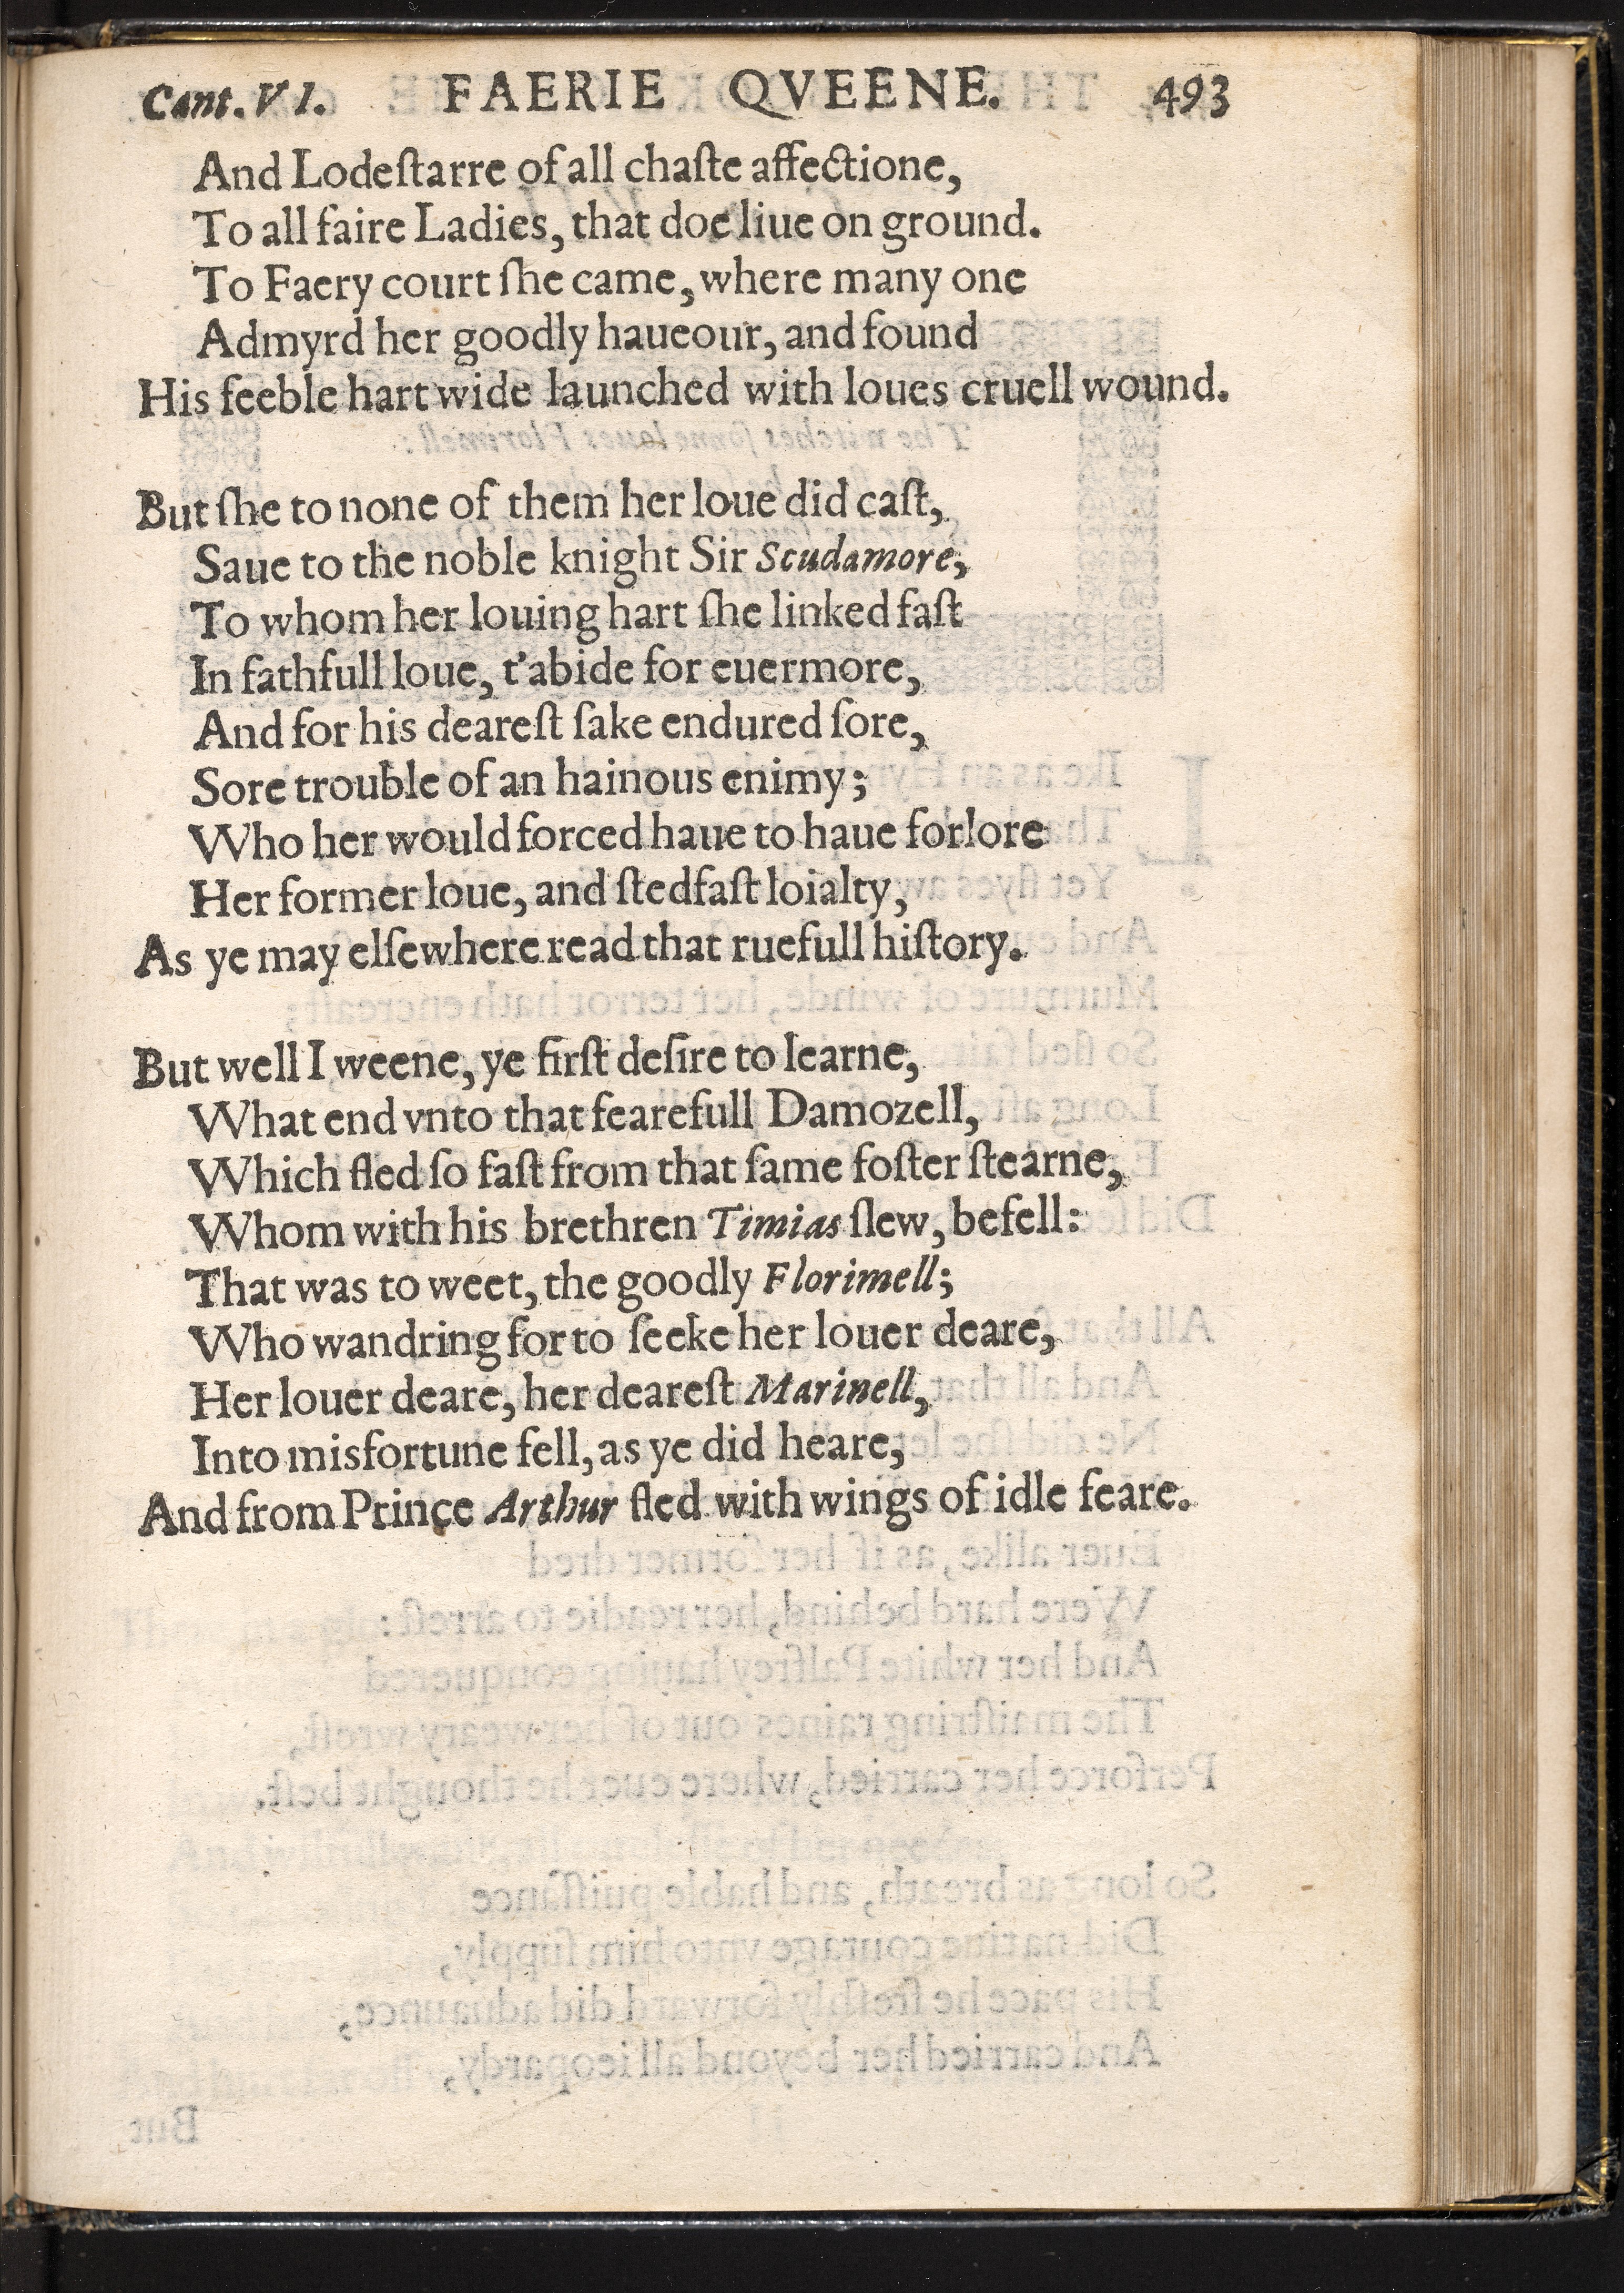 Cant. VI. FAERIE QVEENE. 493
And Lodeſtarre of all chaſte affectione,
To all faire Ladies, that doe liue on ground.
To Faery court ſhe came, where many one
Admyrd her goodly haueour, and found
His feeble hart wide launched with loues cruell wound.
But ſhe to none of them her loue did caſt,
Saue to the noble knight Sir Scudamore,
To whom her louing hart ſhe linked faſt
In fathfull loue, t'abide for euermore,
And for his deareſt ſake endured ſore,
Sore trouble of an hainous enimy;
Who her would forced haue to haue forlore
Her former loue, and ſtedfaſt loialty,
As ye may elſewhere read that ruefull hiſtory.
But well I weene, ye firſt deſire to learne,
What end vnto that fearefull Damozell,
Which fled ſo faſt from that ſame foſter ſtearne,
Whom with his brethren Timias ſlew, befell:
That was to weet, the goodly Florimell;
Who wandring for to ſeeke her louer deare,
Her louer deare, her deareſt Marinell,
Into misfortune fell, as ye did heare,
And from Prince Arthur fled with wings of idle feare.